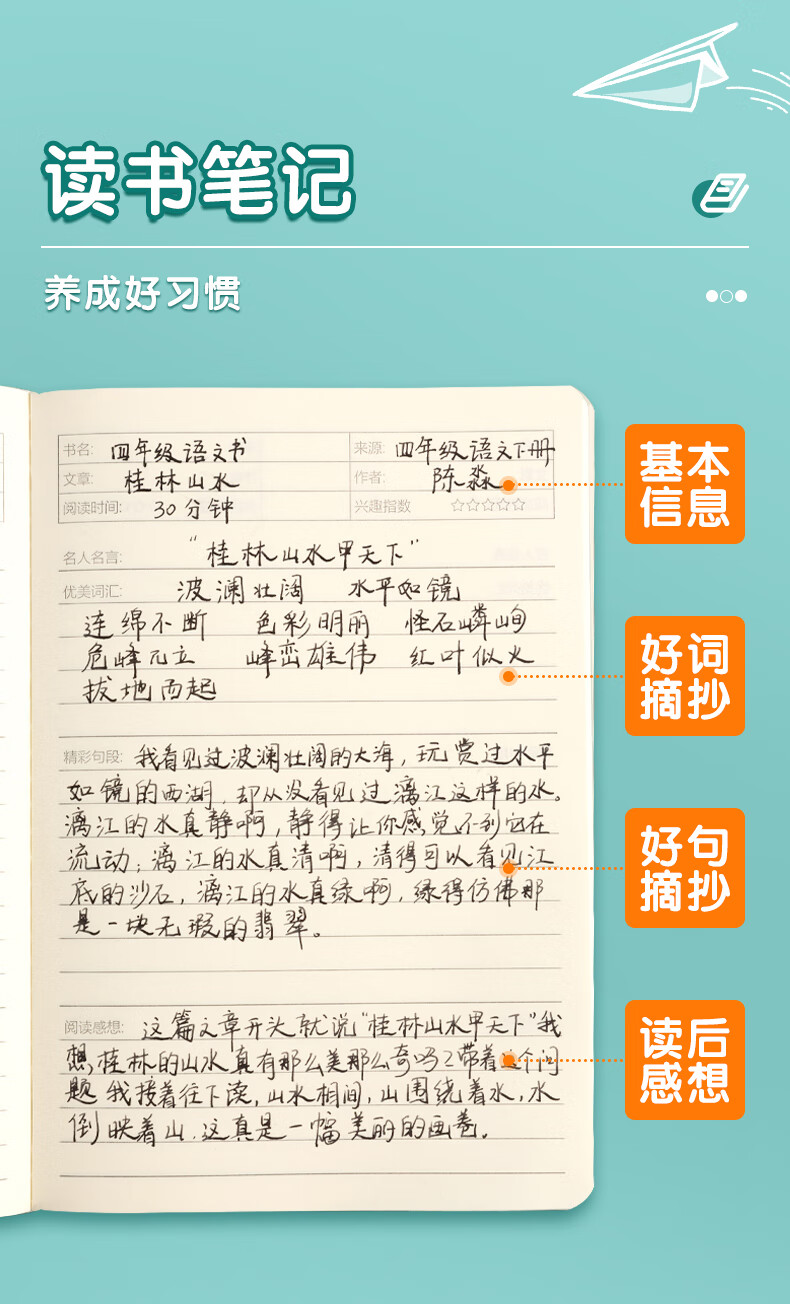 读书笔记
养成好习惯
书名: 四年级语文书 来源: 四年级语文下册
文章: 桂林山水 作者: 陈淼
阅读时间: 30分钟 兴趣指数 ☆☆☆☆☆
名人名言: “桂林山水甲天下”
优美词汇: 波澜壮阔 水平如镜
连绵不断 色彩明丽 怪石嶙峋
危峰兀立 峰峦雄伟 红叶似火
拔地而起
精彩句段: 我看见过波澜壮阔的大海,玩赏过水平
如镜的西湖,却从没看见过漓江这样的水。
漓江的水真静啊,静得让你感觉不到它在
流动;漓江的水真清啊,清得可以看见江
底的沙石,漓江的水真绿啊,绿得仿佛那
是一块无瑕的翡翠。
阅读感想: 这篇文章开头就说“桂林山水甲天下”我
想,桂林的山水真有那么美那么奇吗?带着这个问
题我接着往下读,山水相间,山围绕着水,水
倒映着山.这真是一幅美丽的画卷。
基本
信息
好词
摘抄
好句
摘抄
读后
感想